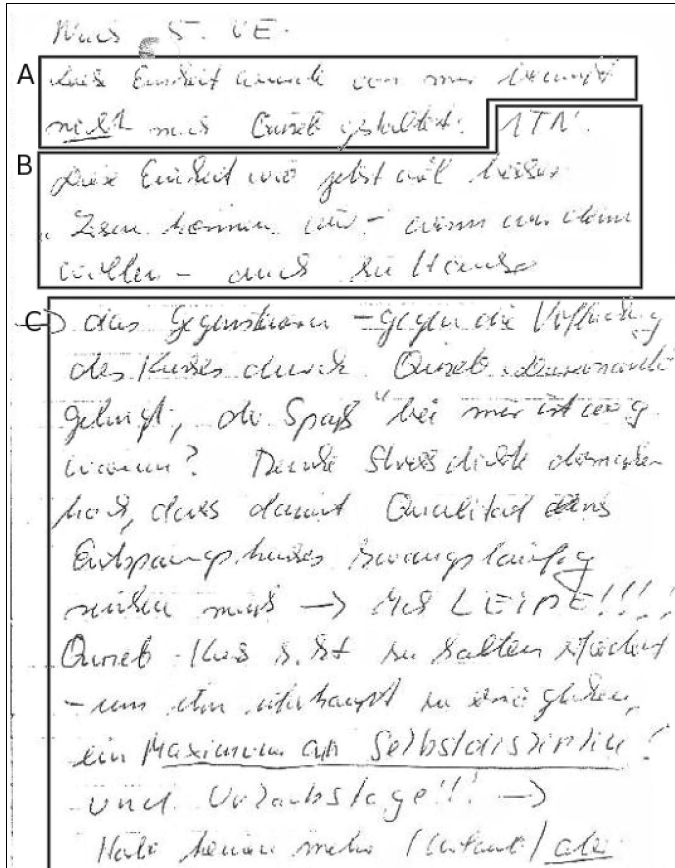 Nach 5. UE.
A
diese Einheit wurde von mir bewußt
nicht nach Quneb gestaltet! 1TN.
B
Diese Einheit wird jetzt viel besser
können wir - wenn wir denn
wollen - auch zu Hause
C
das Gegensteuern - gegen die Verflachung
des Kurses durch Quneb
gelingt, der Spaß" bei mir ist weg
warum? Denke Stressdichte dermaßen
hoch, dass damit Qualität eines
Entspannungskurses zwangsläufig
sinken muß → Ich LEIDE!!!!
Quneb-Kurs z. Zt zu halten
- um ihn überhaupt zu ermöglichen,
ein Maximum an Selbstdisziplin!
und Urlaubstage!!! →
Habe keinen mehr (Urlaub) als